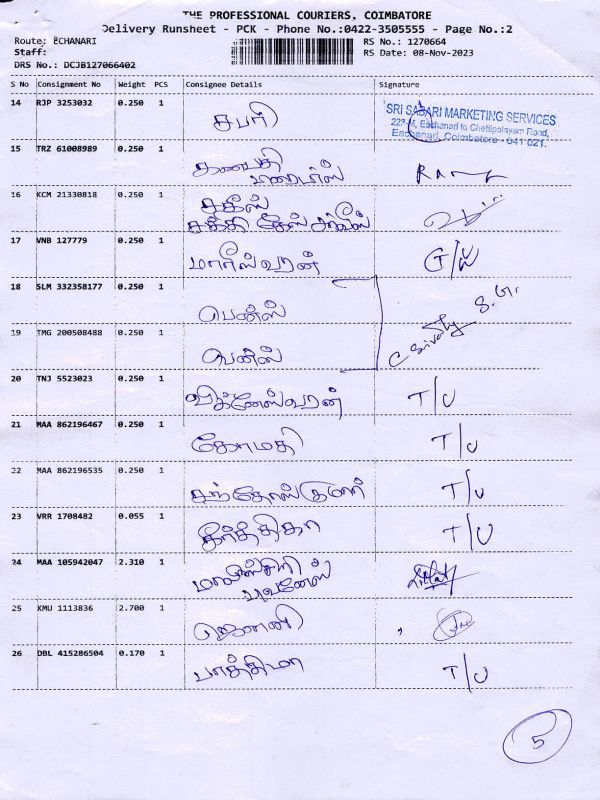 THE PROFESSIONAL COURIERS, COIMBATORE
Delivery Runsheet - PCK - Phone No.:0422-3505555 - Page No.:2
Route: ECHANARI RS No.: 1270664
Staff: RS Date: 08-Nov-2023
DRS No.: DCJB127066402
S No Consignment No Weight PCS Consignee Details Signature
14 RJP 3253032 0.250 1 சபரி
SRI SABARI MARKETING SERVICES
Eachanari to Chettipalayam Road,
Eachanari, Coimbatore - 641 021.
15 TRZ 61008989 0.250 1 கணபதி
16 KCM 21330818 0.250 1
சக்தி கேஸ் சர்வீஸ்
17 VNB 127779 0.250 1 மாரீஸ்வரன் G/W
18 SLM 332358177 0.250 1 பென்ஸ் S.G.
19 TMG 200508488 0.250 1 பென்ஸ்
20 TNJ 5523023 0.250 1 விக்னேஸ்வரன் T/U
21 MAA 862196467 0.250 1 கோமதி T/U
22 MAA 862196535 0.250 1 சந்தோஸ்குமார் T/U
23 VRR 1708482 0.055 1 கீர்த்திகா T/U
24 MAA 105942047 2.310 1
25 KMU 1113836 2.700 1
26 DBL 415286504 0.170 1 பாத்திமா T/U
5